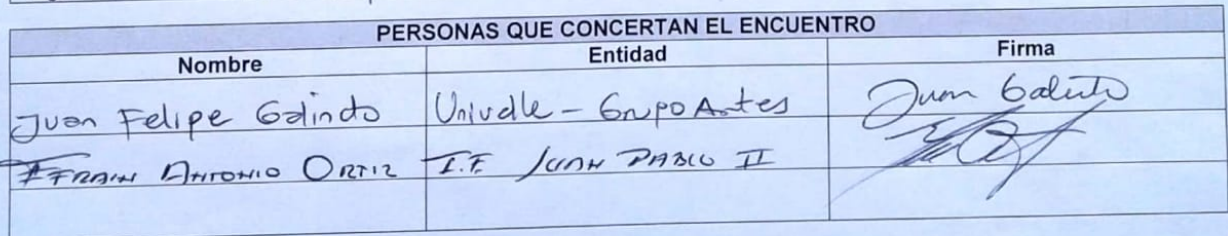 PERSONAS QUE CONCERTAN EL ENCUENTRO
Nombre Entidad Firma
Juan Felipe Galindo Univalle - Grupo Artes Juan Galindo
EFRAIN ANTONIO ORTIZ I.E. JUAN PABLO II